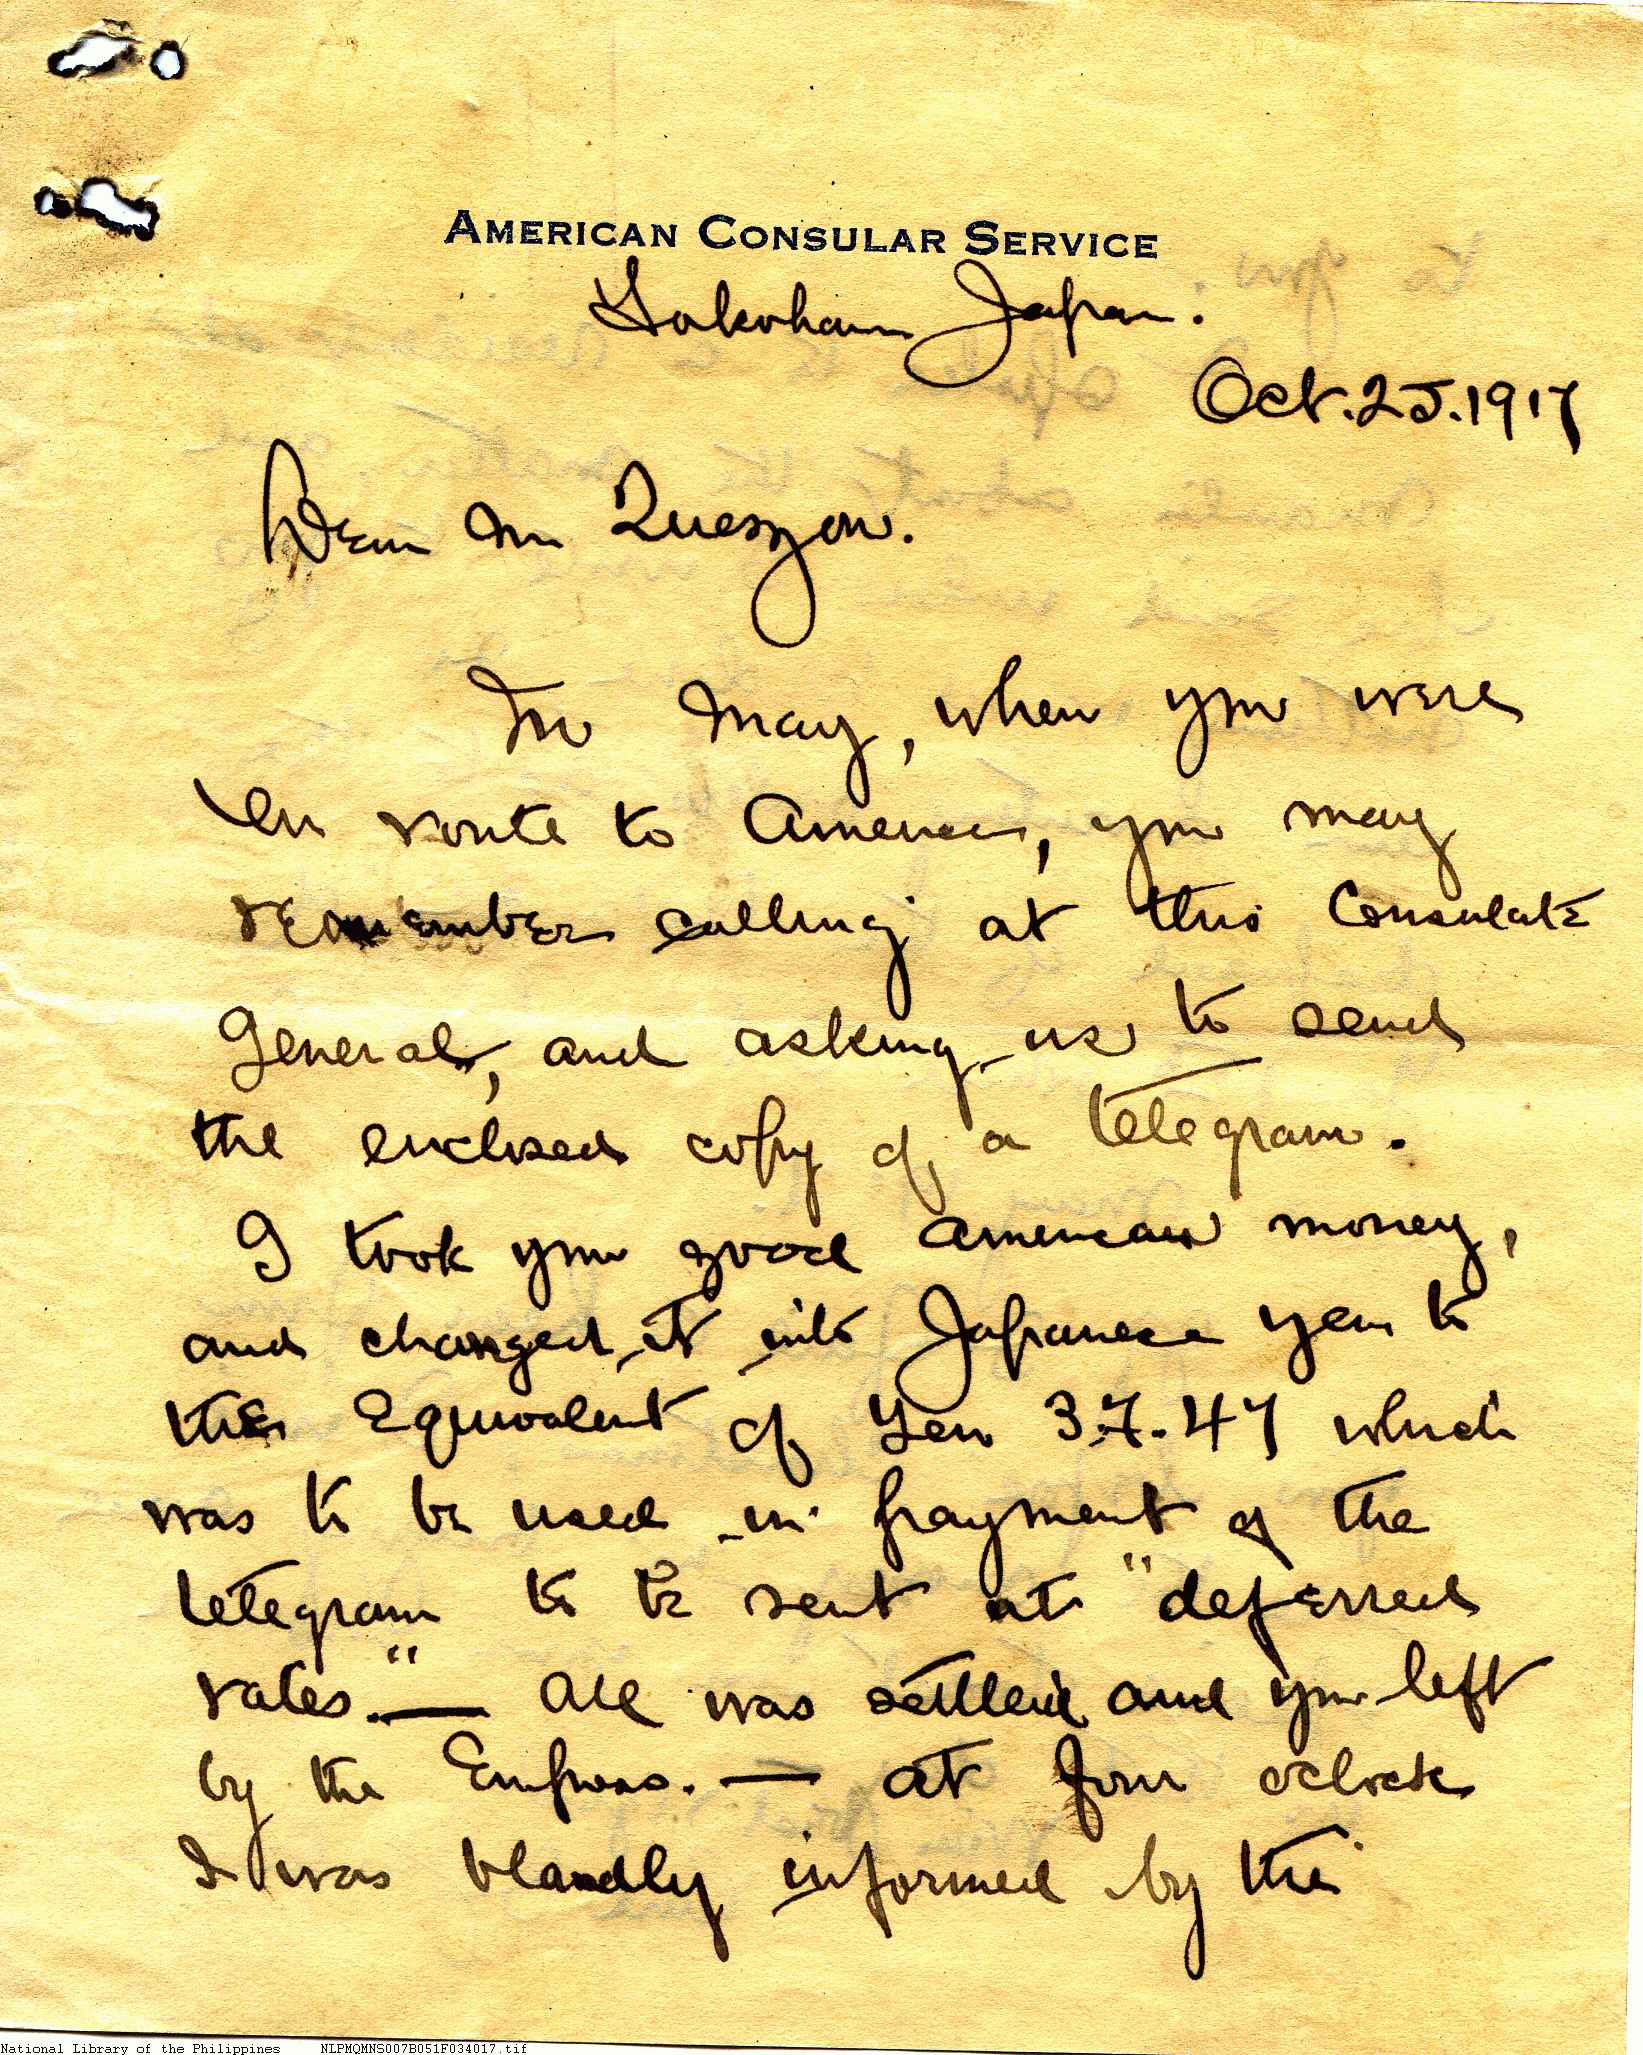 AMERICAN CONSULAR SERVICE
Yokohama Japan.
Oct. 25. 1917
Dear Mr Queszon.
In May, when you were
en route to America, you may
remember calling at this Consulate
General, and asking us to send
the enclosed copy of a telegram.
I took your good American money,
and changed it into Japanese yen to
the Equivalent of Yen 37.47 which
was to be used in payment of the
telegram to be sent at "deferred
rates." — All was settled and you left
by the Empress. — at four oclock
I was blandly informed by the
National Library of the Philippines NLPMQMNS007B051F034017.tif